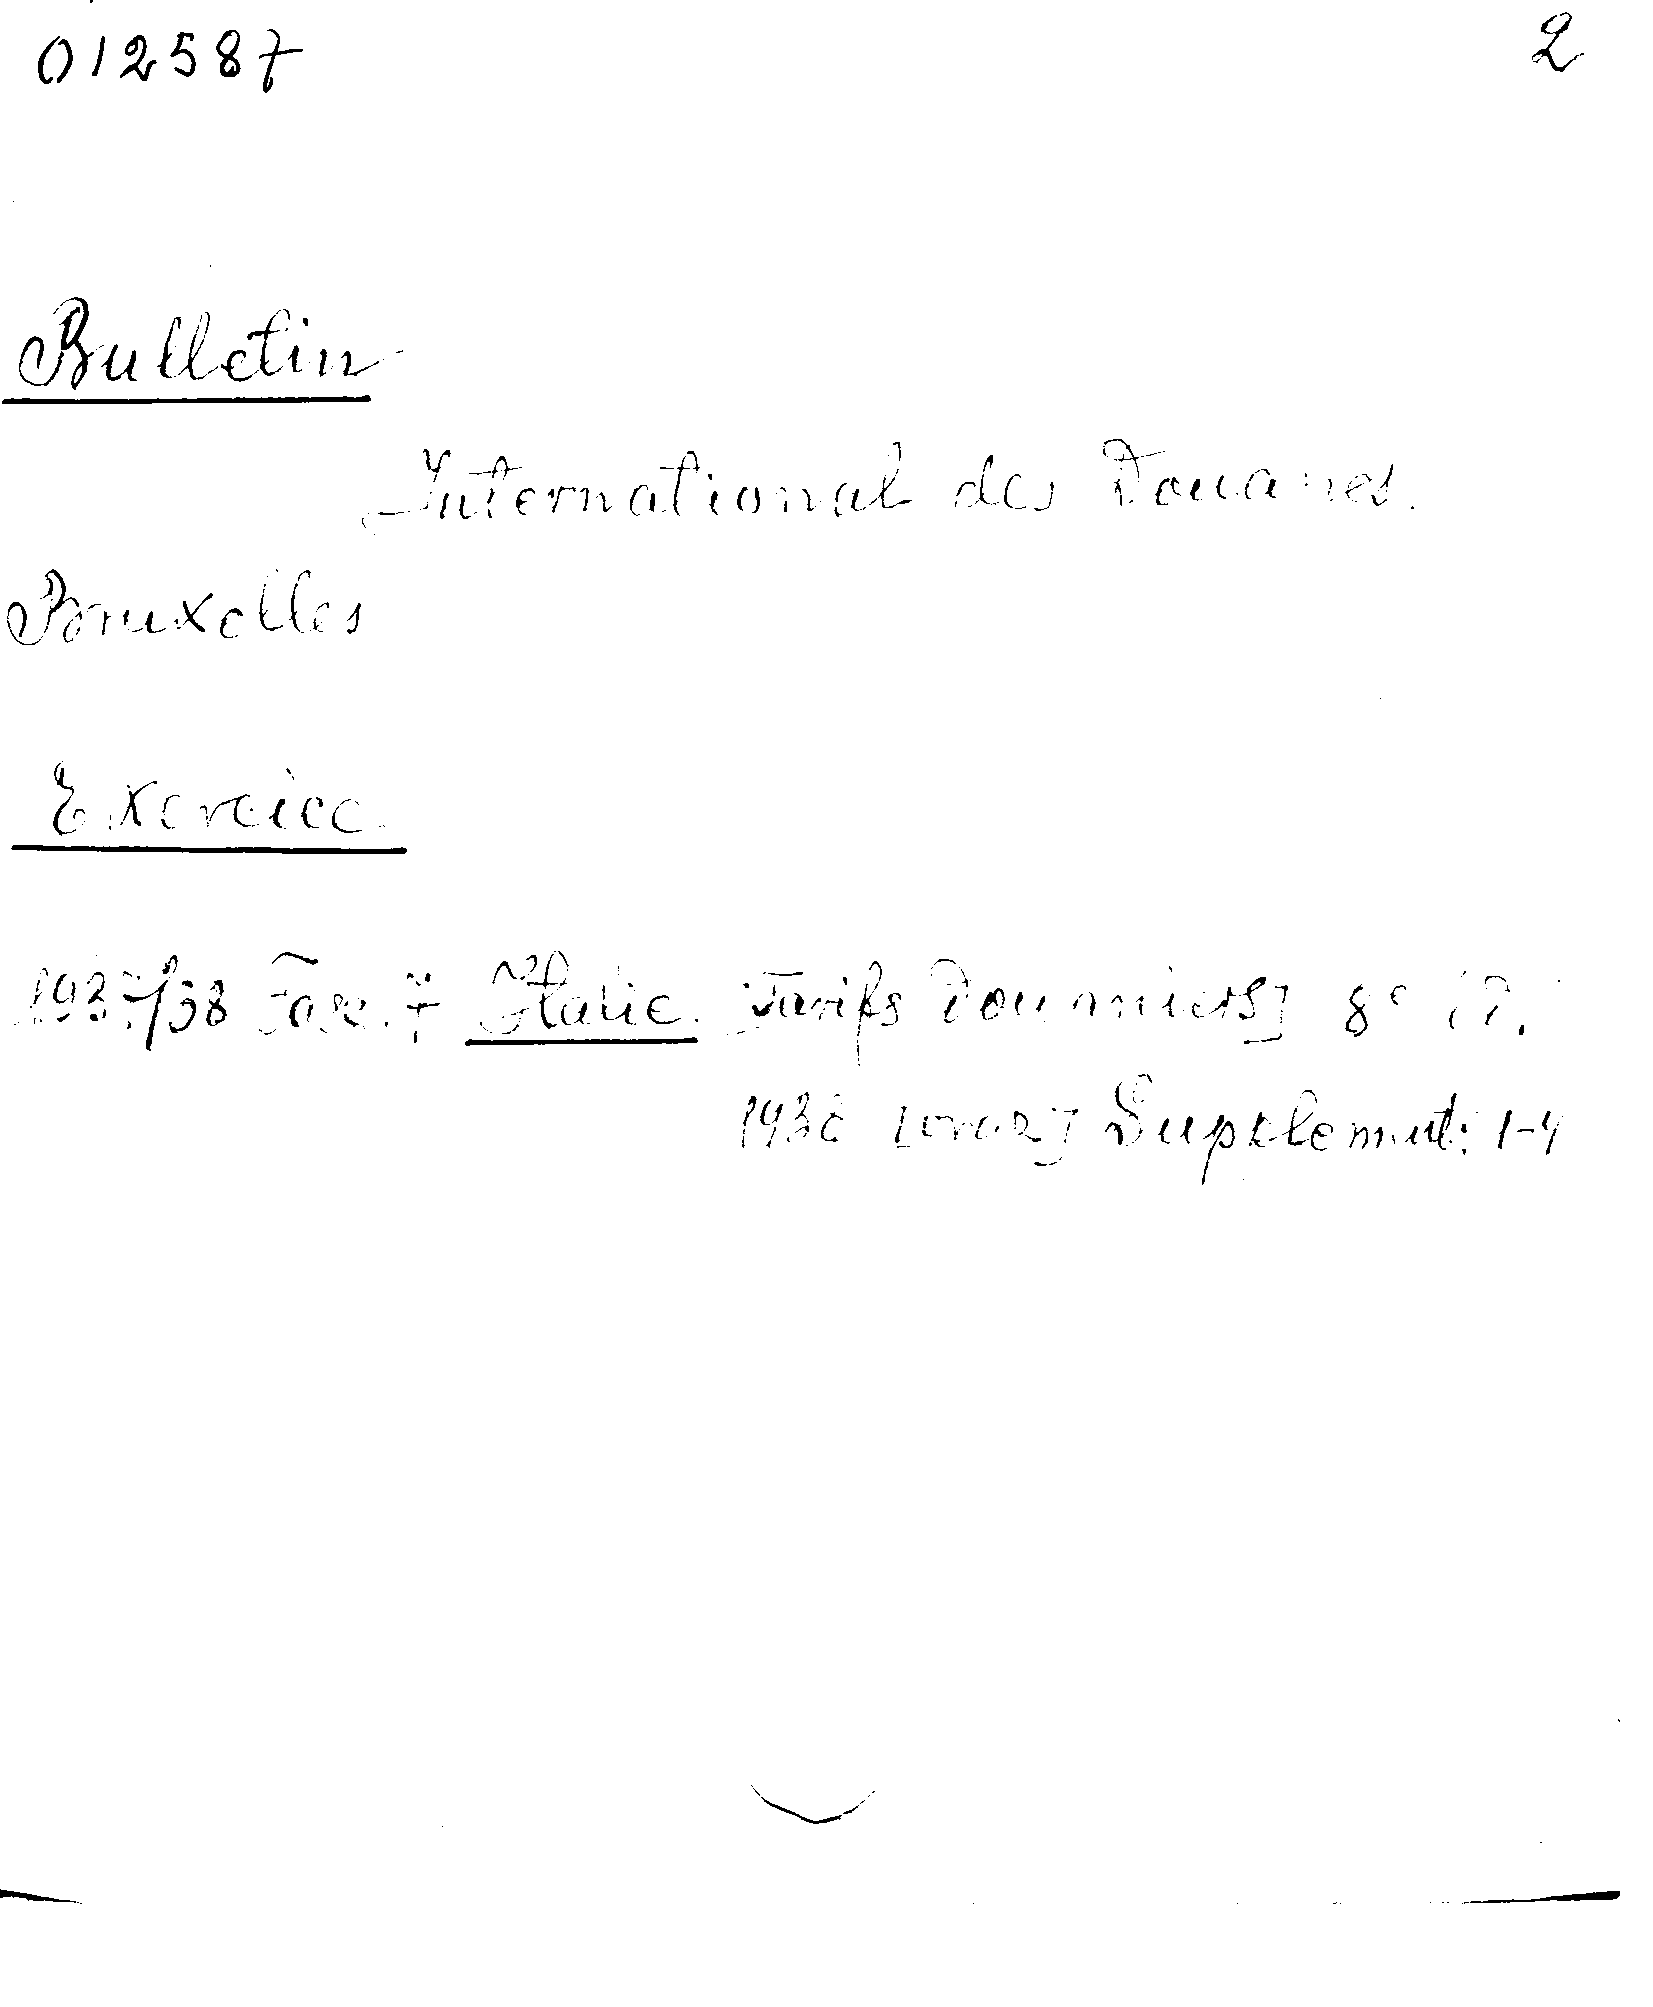 012587 2
Bulletin
International des Douanes.
Bruxelles
Exercice
1937/38 Fasc. 7 Italie. Tarifs Douaniers] 8e
Supplement: 1-4